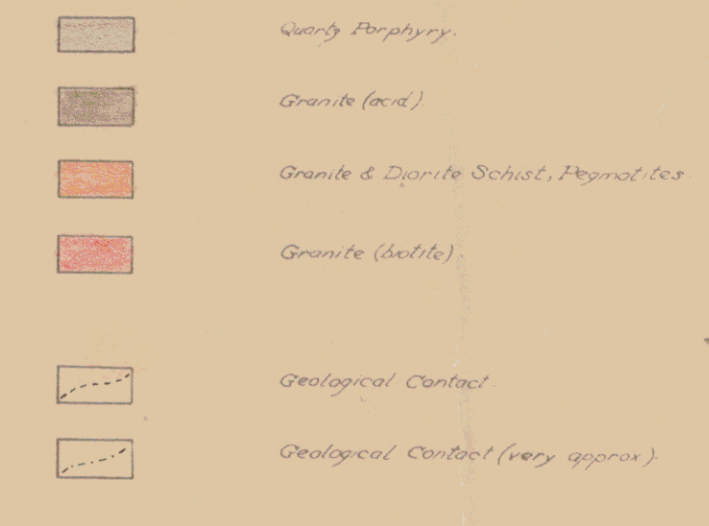 Quartz Porphyry.
Granite (acid).
Granite & Diorite Schist, Pegmatites
Granite (biotite).
Geological Contact.
Geological Contact (very approx).